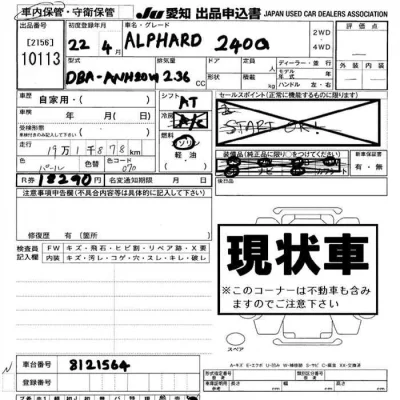 車内保管・守衛保管
JU 愛知 出品申込書 JAPAN USED CAR DEALERS ASSOCIATION
出品番号
[2156]
10113
初度登録年月
22年4月
車名・グレード
ALPHARD 240G
2WD・4WD
評価点
外装 内装
型式
DBA-ANH20W
2.36 CC
積載量
kg
ドア
D
定員
人
ディーラー・並行
モデル年式 年
ハンドル 左・右
車歴
自家用・( )
シフト
AT
セールスポイント(正常に機能するものに限ります)
START OK!
車検
年 月( 日)
冷房
A/C
受検形態
年 月 日
走行
19万1千878km
ガソリン
軽油
( )
装備品(純正品に限り○をつけてください)
新車保証書
有・無
色
パール
色替
色コード
070
R券
18290円
名変通知期限 月 日
注意事項申告欄(不具合内容等は具体的に記入して下さい)
修復歴 有(箇所 )
検査員記入欄
FW キズ・飛石・ヒビ割・リペア跡・X要
内装 キズ・汚レ・コゲ・穴・スレ・キレ・破レ
現状車
※このコーナーは不動車も含みますのでご注意下さい
スペア
車台番号
8121564
登録番号
型式指定番号
類別区分番号
長さ
幅
高さ